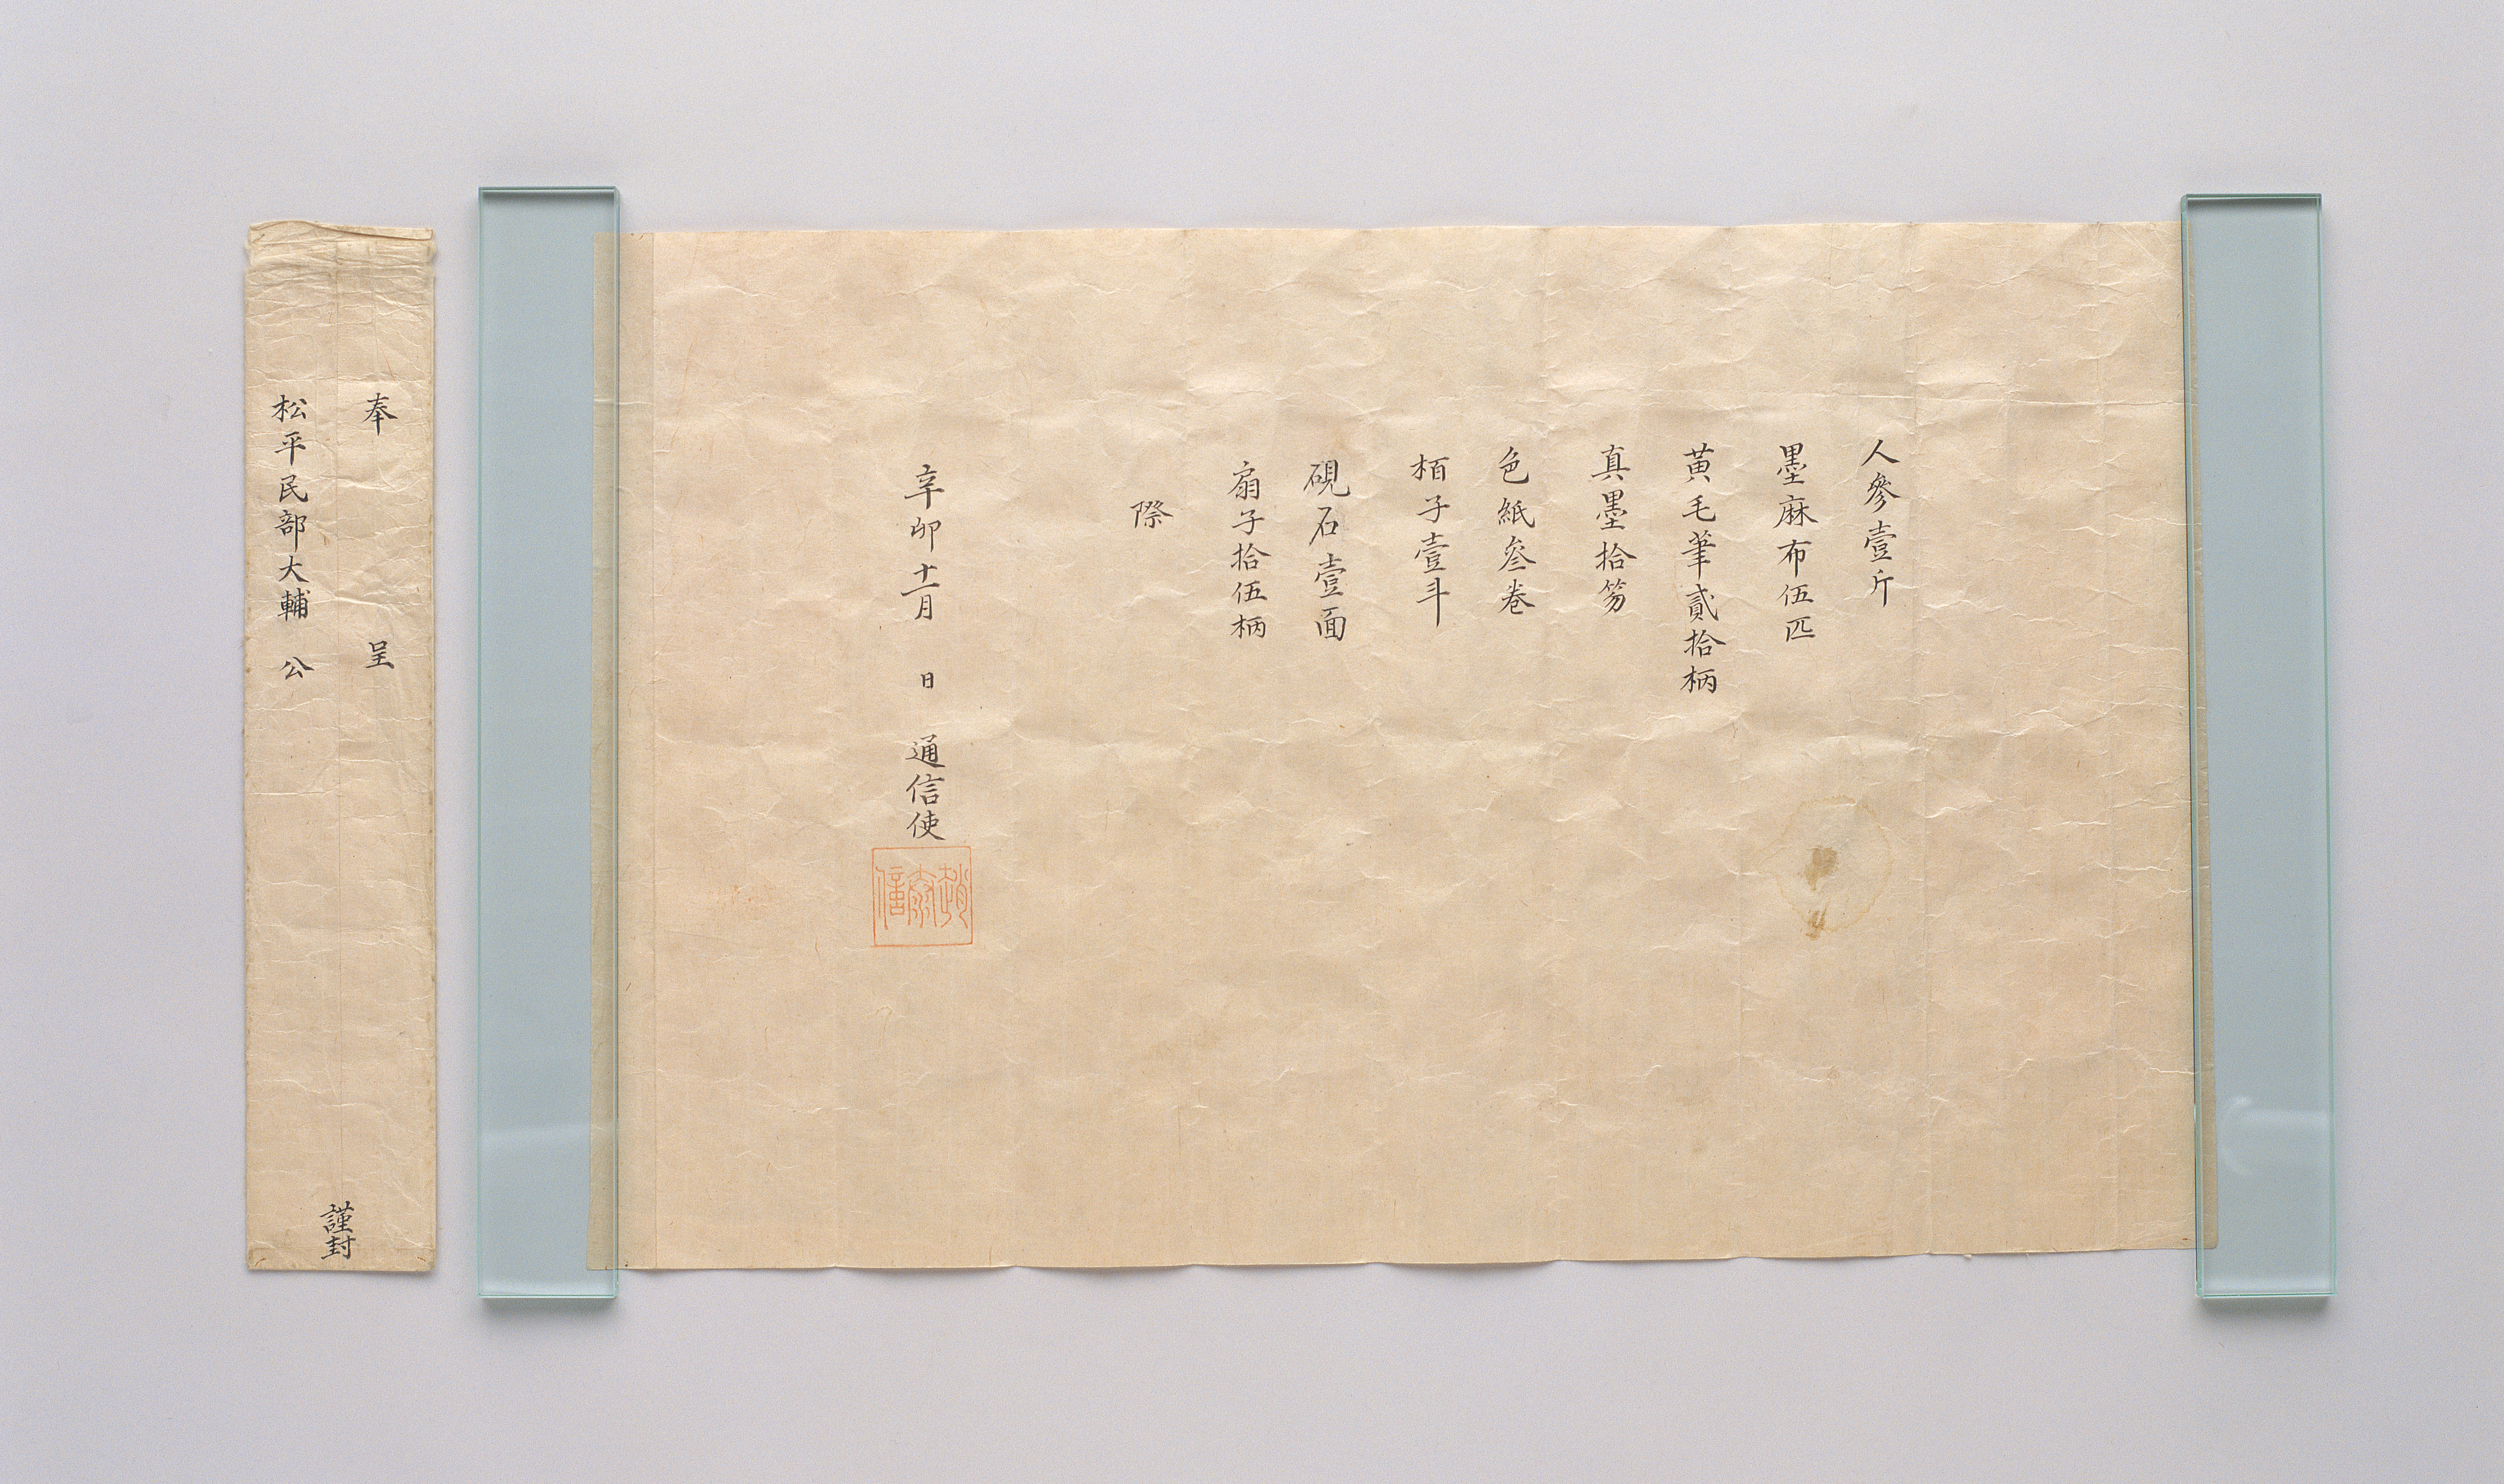 人參壹斤
墨麻布伍匹
黃毛筆貳拾柄
真墨拾笏
色紙叁卷
栢子壹斗
硯石壹面
扇子拾伍柄
際
辛卯十一月 日 通信使
奉 呈
松平民部大輔 公
謹封